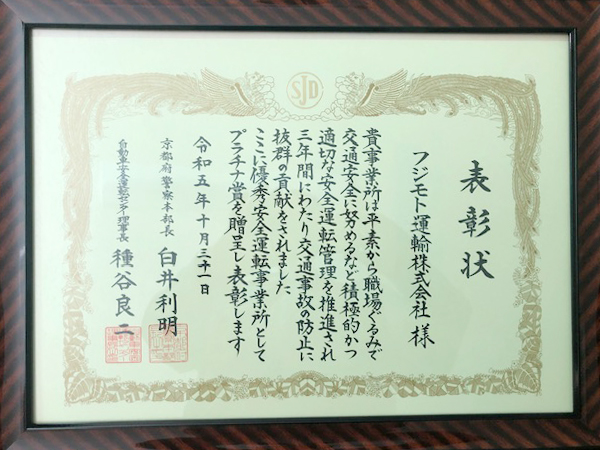 SJD
表彰状
フジモト運輸株式会社 様
貴事業所は平素から職場ぐるみで
交通安全に努めるなど積極的かつ
適切な安全運転管理を推進され
三年間にわたり交通事故の防止に
抜群の貢献をされました
ここに優秀安全運転事業所として
プラチナ賞を贈呈し表彰します
令和五年十月三十一日
京都府警察本部長 白井利明
自動車安全運転センター理事長 種谷良二